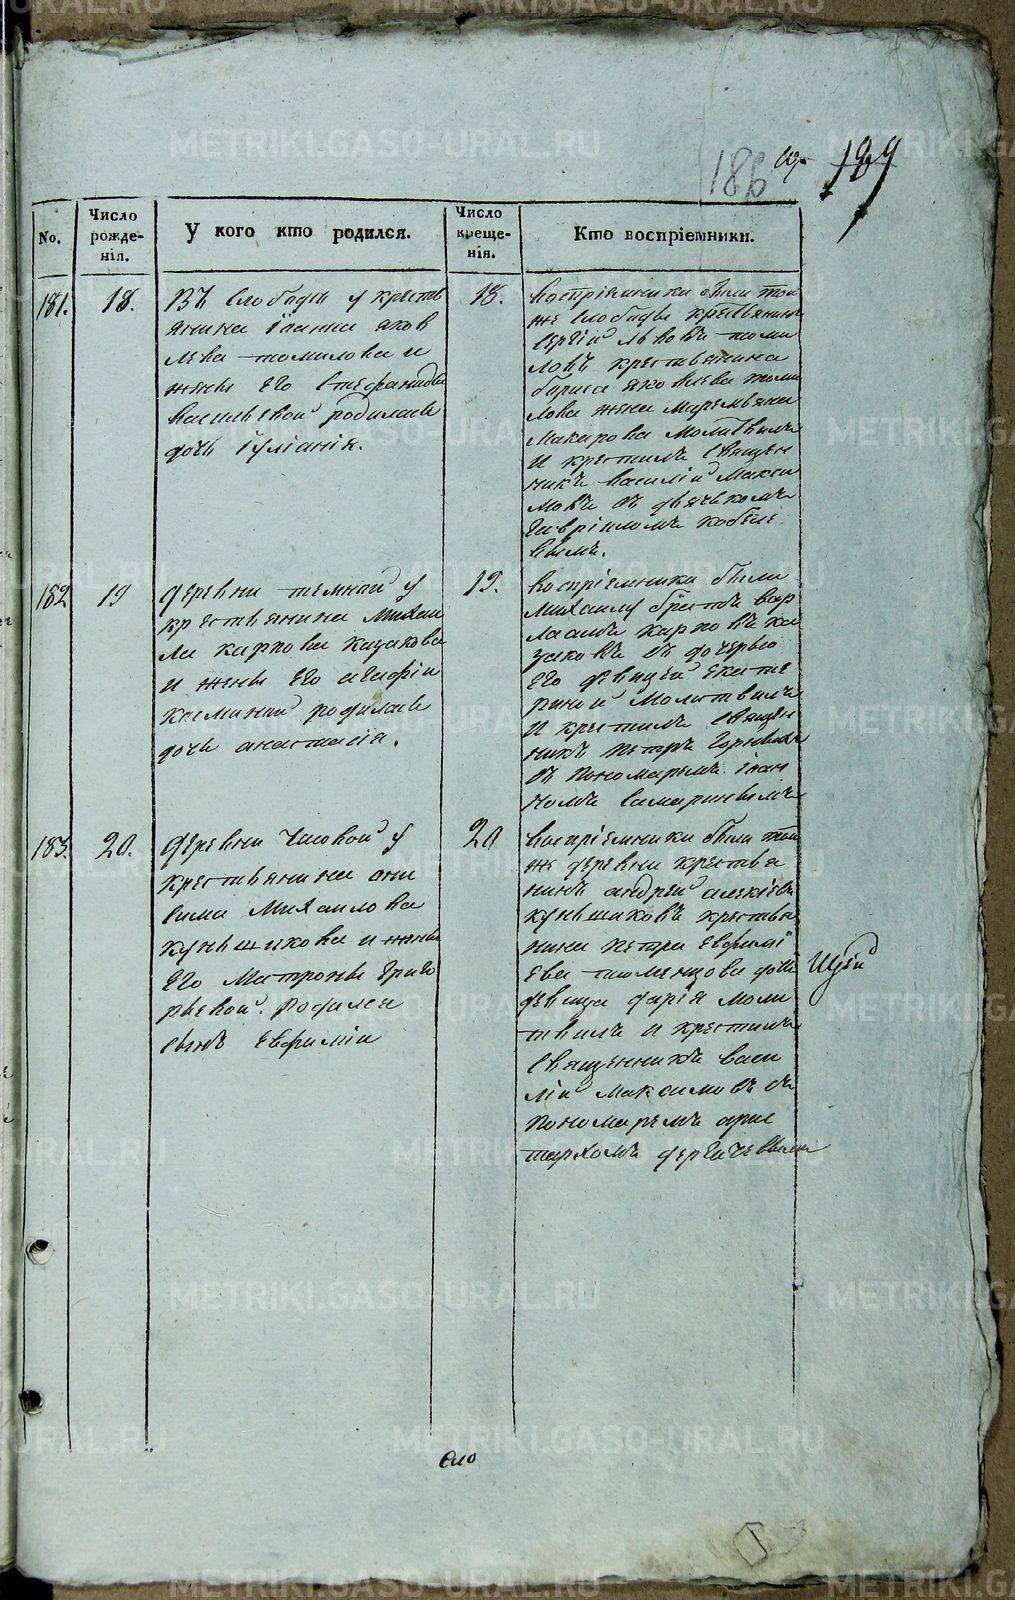 186
189
No.
Число рожде-нія.
У кого кто родился.
Число креще-нія.
Кто воспріемники.
181.
18.
Въ Слободы у кресть
янина Іоанна яков
лева томилова и
жены его Стефаниды
васильевой родилась
дочь Іуліанія.
18.
воспріемники были той
же слободы крестьянинъ
Сергій львовъ томи
ловъ крестьянина
бориса яковлева томи
лова жена
макарова молитвилъ
и крестилъ священ
никъ василій макси
мовъ съ дьячькомъ
гавріиломъ кобеле
вымъ.
182
19
деревни темной у
крестьянина Михаи
ла карпова казакова
и жены его агафіи
родилась
дочь анастасія.
19.
воспріемники были
Михаилу братъ вар
лаамъ карповъ ка
заковъ съ дочерью
его девицей екате
риной молитвилъ
и крестилъ священ
никъ петръ
съ пономаремъ іоан
номъ Самаринымъ
183.
20.
деревни у
крестьянина они
сима михаилова
кунщикова и жены
его матроны григо
рьевой. родился
сынъ евфимій
20
воспріемники были той
же деревни крестья
нинъ андрей алексіевъ
кунщиковъ крестья
нина петра евфимі
ева дочь
девица дарія моли
твилъ и крестилъ
священникъ васи
лій максимовъ съ
пономаремъ арис
тархомъ дергачевымъ
METRIKI.GASO-URAL.RU